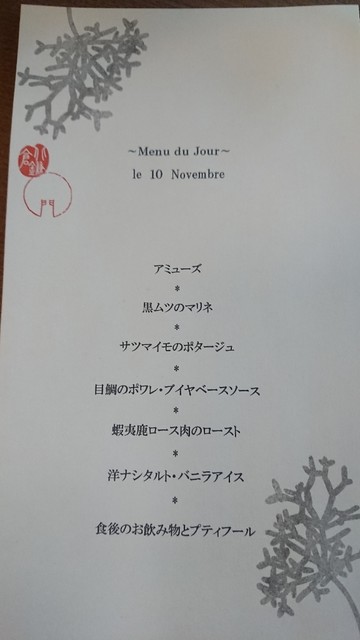 ~Menu du Jour~
le 10 Novembre
門
アミューズ
*
黒ムツのマリネ
*
サツマイモのポタージュ
*
目鯛のポワレ・ブイヤベースソース
*
蝦夷鹿ロース肉のロースト
*
洋ナシタルト・バニラアイス
*
食後のお飲み物とプティフール